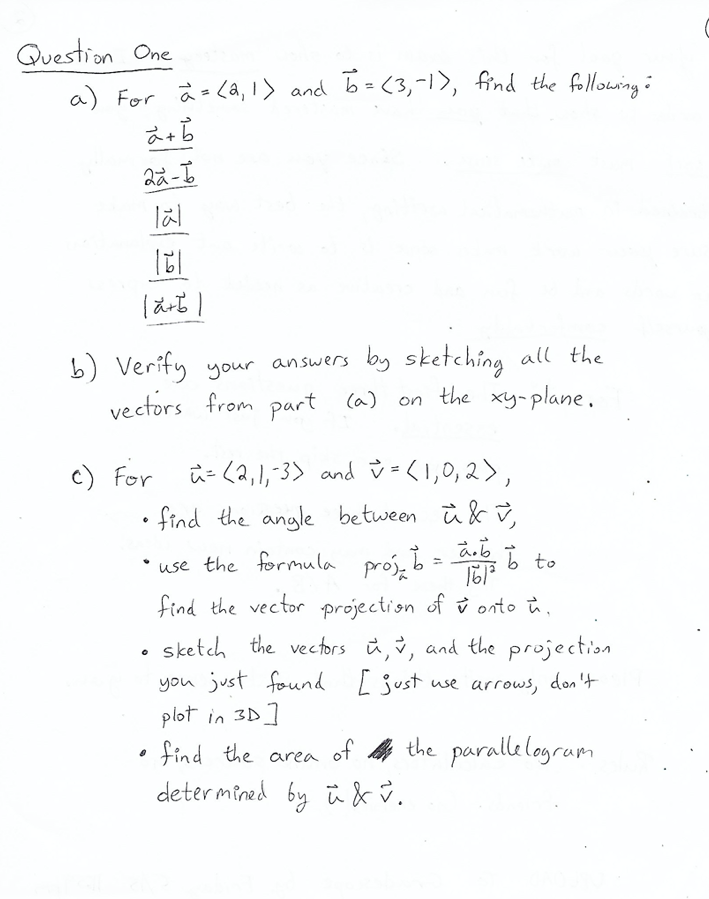 Question One
a) For a⃗ = <2, 1> and b⃗ = <3, -1>, find the following:
a⃗ + b⃗
2a⃗ - b⃗
|a⃗|
|b⃗|
|a⃗+b⃗|
b) Verify your answers by sketching all the
vectors from part (a) on the xy-plane.
c) For u⃗ = <2, 1, -3> and v⃗ = <1, 0, 2>,
• find the angle between u⃗ & v⃗,
• use the formula proj_a⃗ b⃗ = (a⃗•b⃗ / |b⃗|²) b⃗ to
find the vector projection of v⃗ onto u⃗.
• sketch the vectors u⃗, v⃗, and the projection
you just found [just use arrows, don't
plot in 3D]
• find the area of the parallelogram
determined by u⃗ & v⃗.